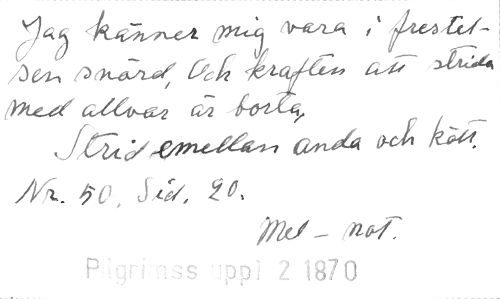 Jag känner mig vara i frestel-
sen snärd, Och kraften att strida
med allvar är borta,
Strid emellan anda och kött.
Nr. 50. Sid. 20.
Mel - not.
Pilgrimss uppl 2 1870